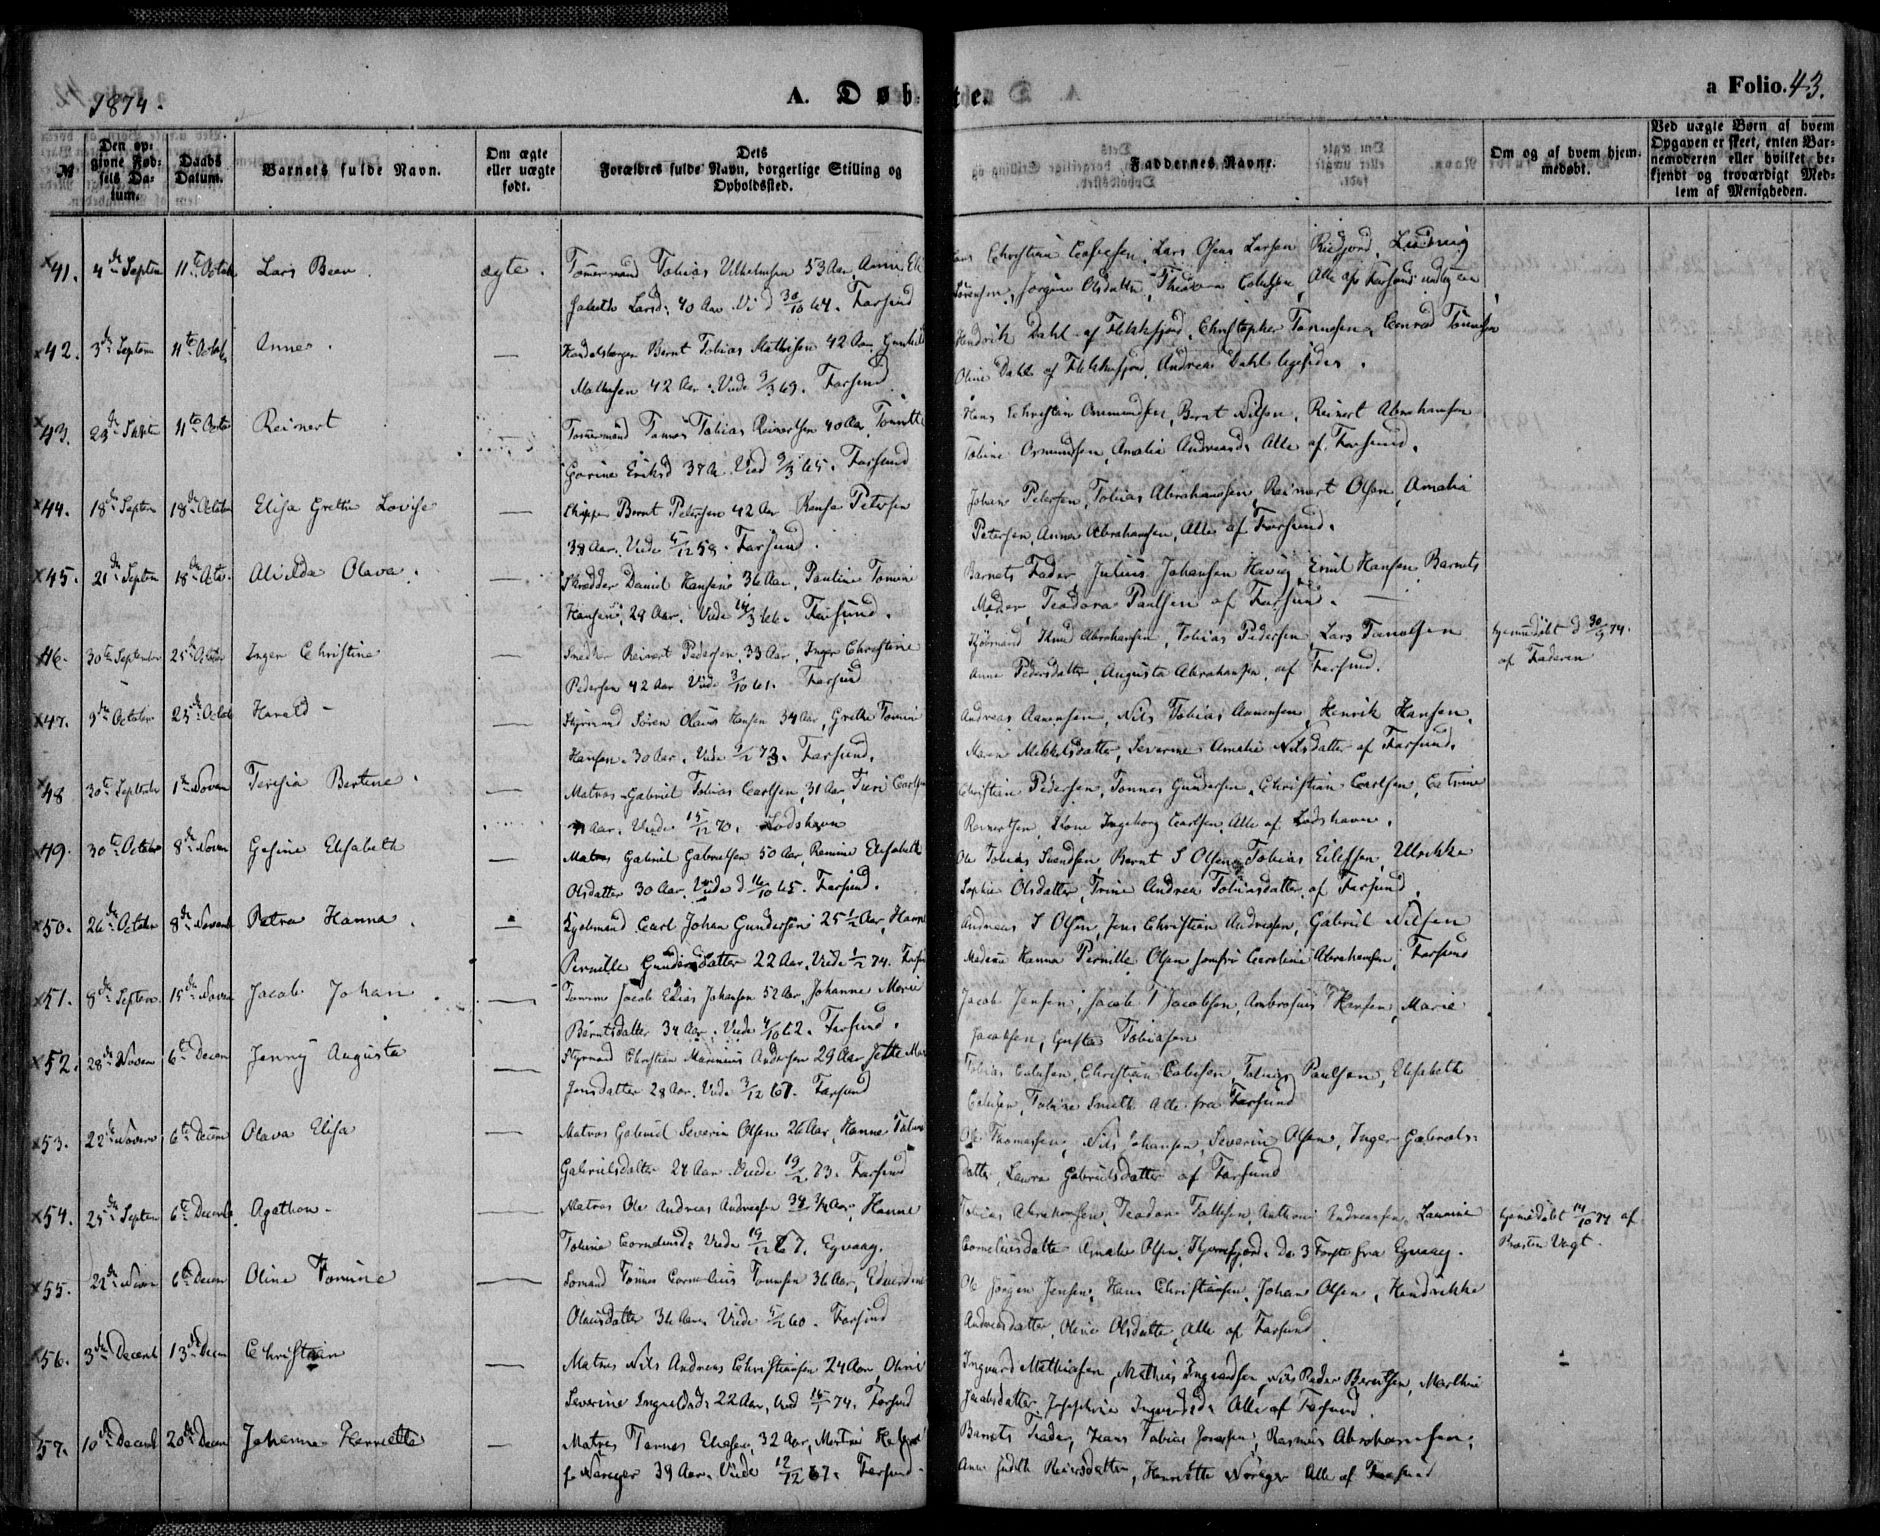 1874.
A. Døbte.
a Folio. 43.
№
Den opgivne Fødsels Datum.
Daabs Datum.
Barnets fulde Navn.
Om ægte eller uægte født.
Dets Forældres fulde Navn, borgerlige Stilling og Opholdssted.
Faddernes Navne.
Om og af hvem hjemmedøbt.
Ved uægte Børn af hvem Opgaven er skeet, enten Barnemoderen eller hvilket bekjendt og troværdigt Medlem af Menigheden.
41. 4de Septem 11te Octob Lars Bear. ægte. Tømmermand Tobias Vilhelmsen 53 Aar, Anne Eli
sabeth Larsd: 40 Aar. Vi d 30/10 64. Farsund
Christian Lars Larsen Ludvig
Sørensen, Jørgine Olsdatter, Alle af Farsund
42. 3de Septem 11te Octob Anne. — Bernt Tobias Mathisen 42 Aar, Gunhild
Mathisen 42 Aar. Viede 9/3 69. Farsund
Hendrik Dahl af Flekkefjord, Christopher Tønnesen, Conrad Tønnesen
Oline Dahl af Flekkefjord, Andrea Dahl ligesedes.
43. 23de Septem 11te Octo Reinert Tømmermand Tønnes Tobias Reinertsen 40 Aar, Tonette
Gorine Eriksd 37 A. Vied 9/3 65. Farsund
Hans Christian Ommundsen, Bernt Nilsen, Reinert Abrahamsen
Tobine Ommundsen, Amalia Andreasd. Alle af Farsund.
44. 18de Septem 18de Octobr Elisa Grethe Lovise — Skipper Bernt Petersen 42 Aar Petersen
38 Aar. Viede 5/12 58. Farsund.
Johan Petersen, Tobias Abrahamsen, Reinert Olsen, Amalia
Petersen, Anna Abrahamsen, Alle af Farsund.
45. 21de Septem 18de Octo. Alvilda Olava. — Skrædder Daniel Hansen 36 Aar, Pauline Tomine
Hansen, 29 Aar. Viede 14/3 66. Farsund.
Barnets Fader, Julius Johansen Emil Hansen Barnets
Moder Teodora Paulsen af Farsund.
46. 30te September 25de October Inger Christine — Reinert Pedersen, 33 Aar, Inger Christine
Pedersen 42 Aar Viede 3/10 61. Farsund
Knud Abrahamsen, Tobias Pedersen, Lars
Anne Pedersdatter, Augusta Abrahamsen, af Farsund.
hjemmedøbt d 30/9 74.
af Faderen
47. 9de October 25de Octob Harald — Styrmand Søren Olaus Hansen 34 Aar, Grethe Tomine
Hansen. 30 Aar. Viede 9/2 73. Farsund.
Andreas Aanensen, Nils Tobias Aanensen, Henrik Hansen.
Maren Mikkelsdatter, Severine Amalie Nilsdatter af Farsund.
48 30te Septembr 1ste Novem Teresia Bertine. — Matros Gabriel Tobias Carlsen, 31 Aar, Turi Carlsen
Aar. Viede 15/12 70. Lodshavn
Christian Pedersen, Tønnes Gundersen, Christian Carlsen, Catrine
Reinertsen, Ingeborg Carlsen, Alle af Lodshavn.
49. 30te October 8de Novem Gesine Elisabeth — Matros Gabriel Gabrielsen 50 Aar, Ramine Elisabeth
Olsdatter 30 Aar. Viede d 16/10 65. Farsund.
Ole Tobias Svendsen Bernt S Olsen, Tobias Eilefsen, Ulrikke
Sophie Olsdatter, Trine Andrea Tobiasdatter af Farsund.
50. 26de October 8de Novemb Petra Hanna. — Carl Johan Gundersen 25 1/2 Aar, Hanne
Pernille Gundersdatter 22 Aar, Viede 1/2 74. Farsu
Andreas S Olsen, Jens Christian Andresen, Gabriel Nilsen
Madame Hanna Pernille Olsen Jomfru Caroline Abrahamsen, Farsund
51. 8de Septem. 15de Novem Jacob Johan. — Jacob Elias Johansen 52 Aar, Johanne Marie
Berntsdatter 34 Aar. Viede 4/10 62. Farsund.
Jacob Jensen, Jacob T Jacobsen, Ambrosius Hansen, Marie
Jacobsen, Gusta Tobiasen
52. 28de Novem 6te Decem Jenny Augusta — Styrmand Christian Marinius Andersen 29 Aar Jette Mar
Jensdatter 28 Aar. Viede 3/12 67. Farsund
Tobias Christian Tobias Paulsen, Elisabeth
Tobine Smith Alle fra Farsund
53. 22de Novem 6te Decem Olava Elisa — Matros Gabriel Severin Olsen 26 Aar, Hanne Tobine
Gabrielsdatter 24 Aar. Viede 19/2 73. Farsund
Ole Thomassen, Nils Johansen, Severin Olsen, Inger Gabriels-
datter, Laura Gabrielsdatter af Farsund
54. 25de Septem 6te Decemb. Agathon — Matros Ole Andreas Andreasen 34 3/4 Aar, Hanne
Tobine Corneliusd: Viede 14/12 67. Egvaag.
Tobias Abrahamsen, Teodor Anthoni Andreassen, Laurine
Corneliusdatter Amalie Olsen, De 3 Første fra Egvaag.
hjemmedøbt 14/10 74 af
Vogt.
55. 22de Novem 6te Decem Oline Tomine — Sømand Tønnes Cornelius Tønnesen 36 Aar, Eduardine
Olausdatter 36 Aar. Viede 5/2 60. Farsund
Ole Jørgen Jensen, Hans Christiansen, Johan Olsen, Hendrikke
Andreasdatter, Oline Olsdatter, Alle af Farsund
56. 3die Decemb 13de Decem Christian — Matros Nils Andreas Christiansen 24 Aar, Oline
Severine Ingvaldsd: 22 Aar, Vied 16/1 74. Farsund
Ingvard Mathiasen, Mathias Ingvardsen, Nils Peder Berntsen, Marthine
Jacobsdatter, Josephine Ingvardsd: Alle af Farsund.
57. 10de Decemb 20de Decem Johanne Henriette — Matros Tønnes Eliasen, 32 Aar,
Noreger 39 Aar. Viede 12/12 67. Farsund
Barnets Fader, Hans Tobias Rasmus Abrahamsen,
Ane Judith Reiersdatter, Henriette Noreger Alle af Farsund